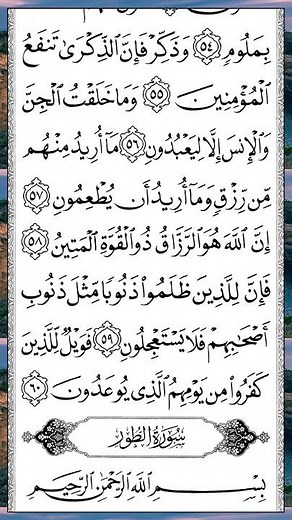 بِمَلُومٍ ٥٤ وَذَكِّرْ فَإِنَّ ٱلذِّكْرَىٰ تَنفَعُ
ٱلْمُؤْمِنِينَ ٥٥ وَمَا خَلَقْتُ ٱلْجِنَّ
وَٱلْإِنسَ إِلَّا لِيَعْبُدُونِ ٥٦ مَآ أُرِيدُ مِنْهُم
مِّن رِّزْقٍ وَمَآ أُرِيدُ أَن يُطْعِمُونِ ٥٧
إِنَّ ٱللَّهَ هُوَ ٱلرَّزَّاقُ ذُو ٱلْقُوَّةِ ٱلْمَتِينُ ٥٨
فَإِنَّ لِلَّذِينَ ظَلَمُوا۟ ذَنُوبًا مِّثْلَ ذَنُوبِ
أَصْحَٰبِهِمْ فَلَا يَسْتَعْجِلُونِ ٥٩ فَوَيْلٌ لِّلَّذِينَ
كَفَرُوا۟ مِن يَوْمِهِمُ ٱلَّذِى يُوعَدُونَ ٦٠
سُورَةُ ٱلطُّورِ
بِسْمِ ٱللَّهِ ٱلرَّحْمَٰنِ ٱلرَّحِيمِ